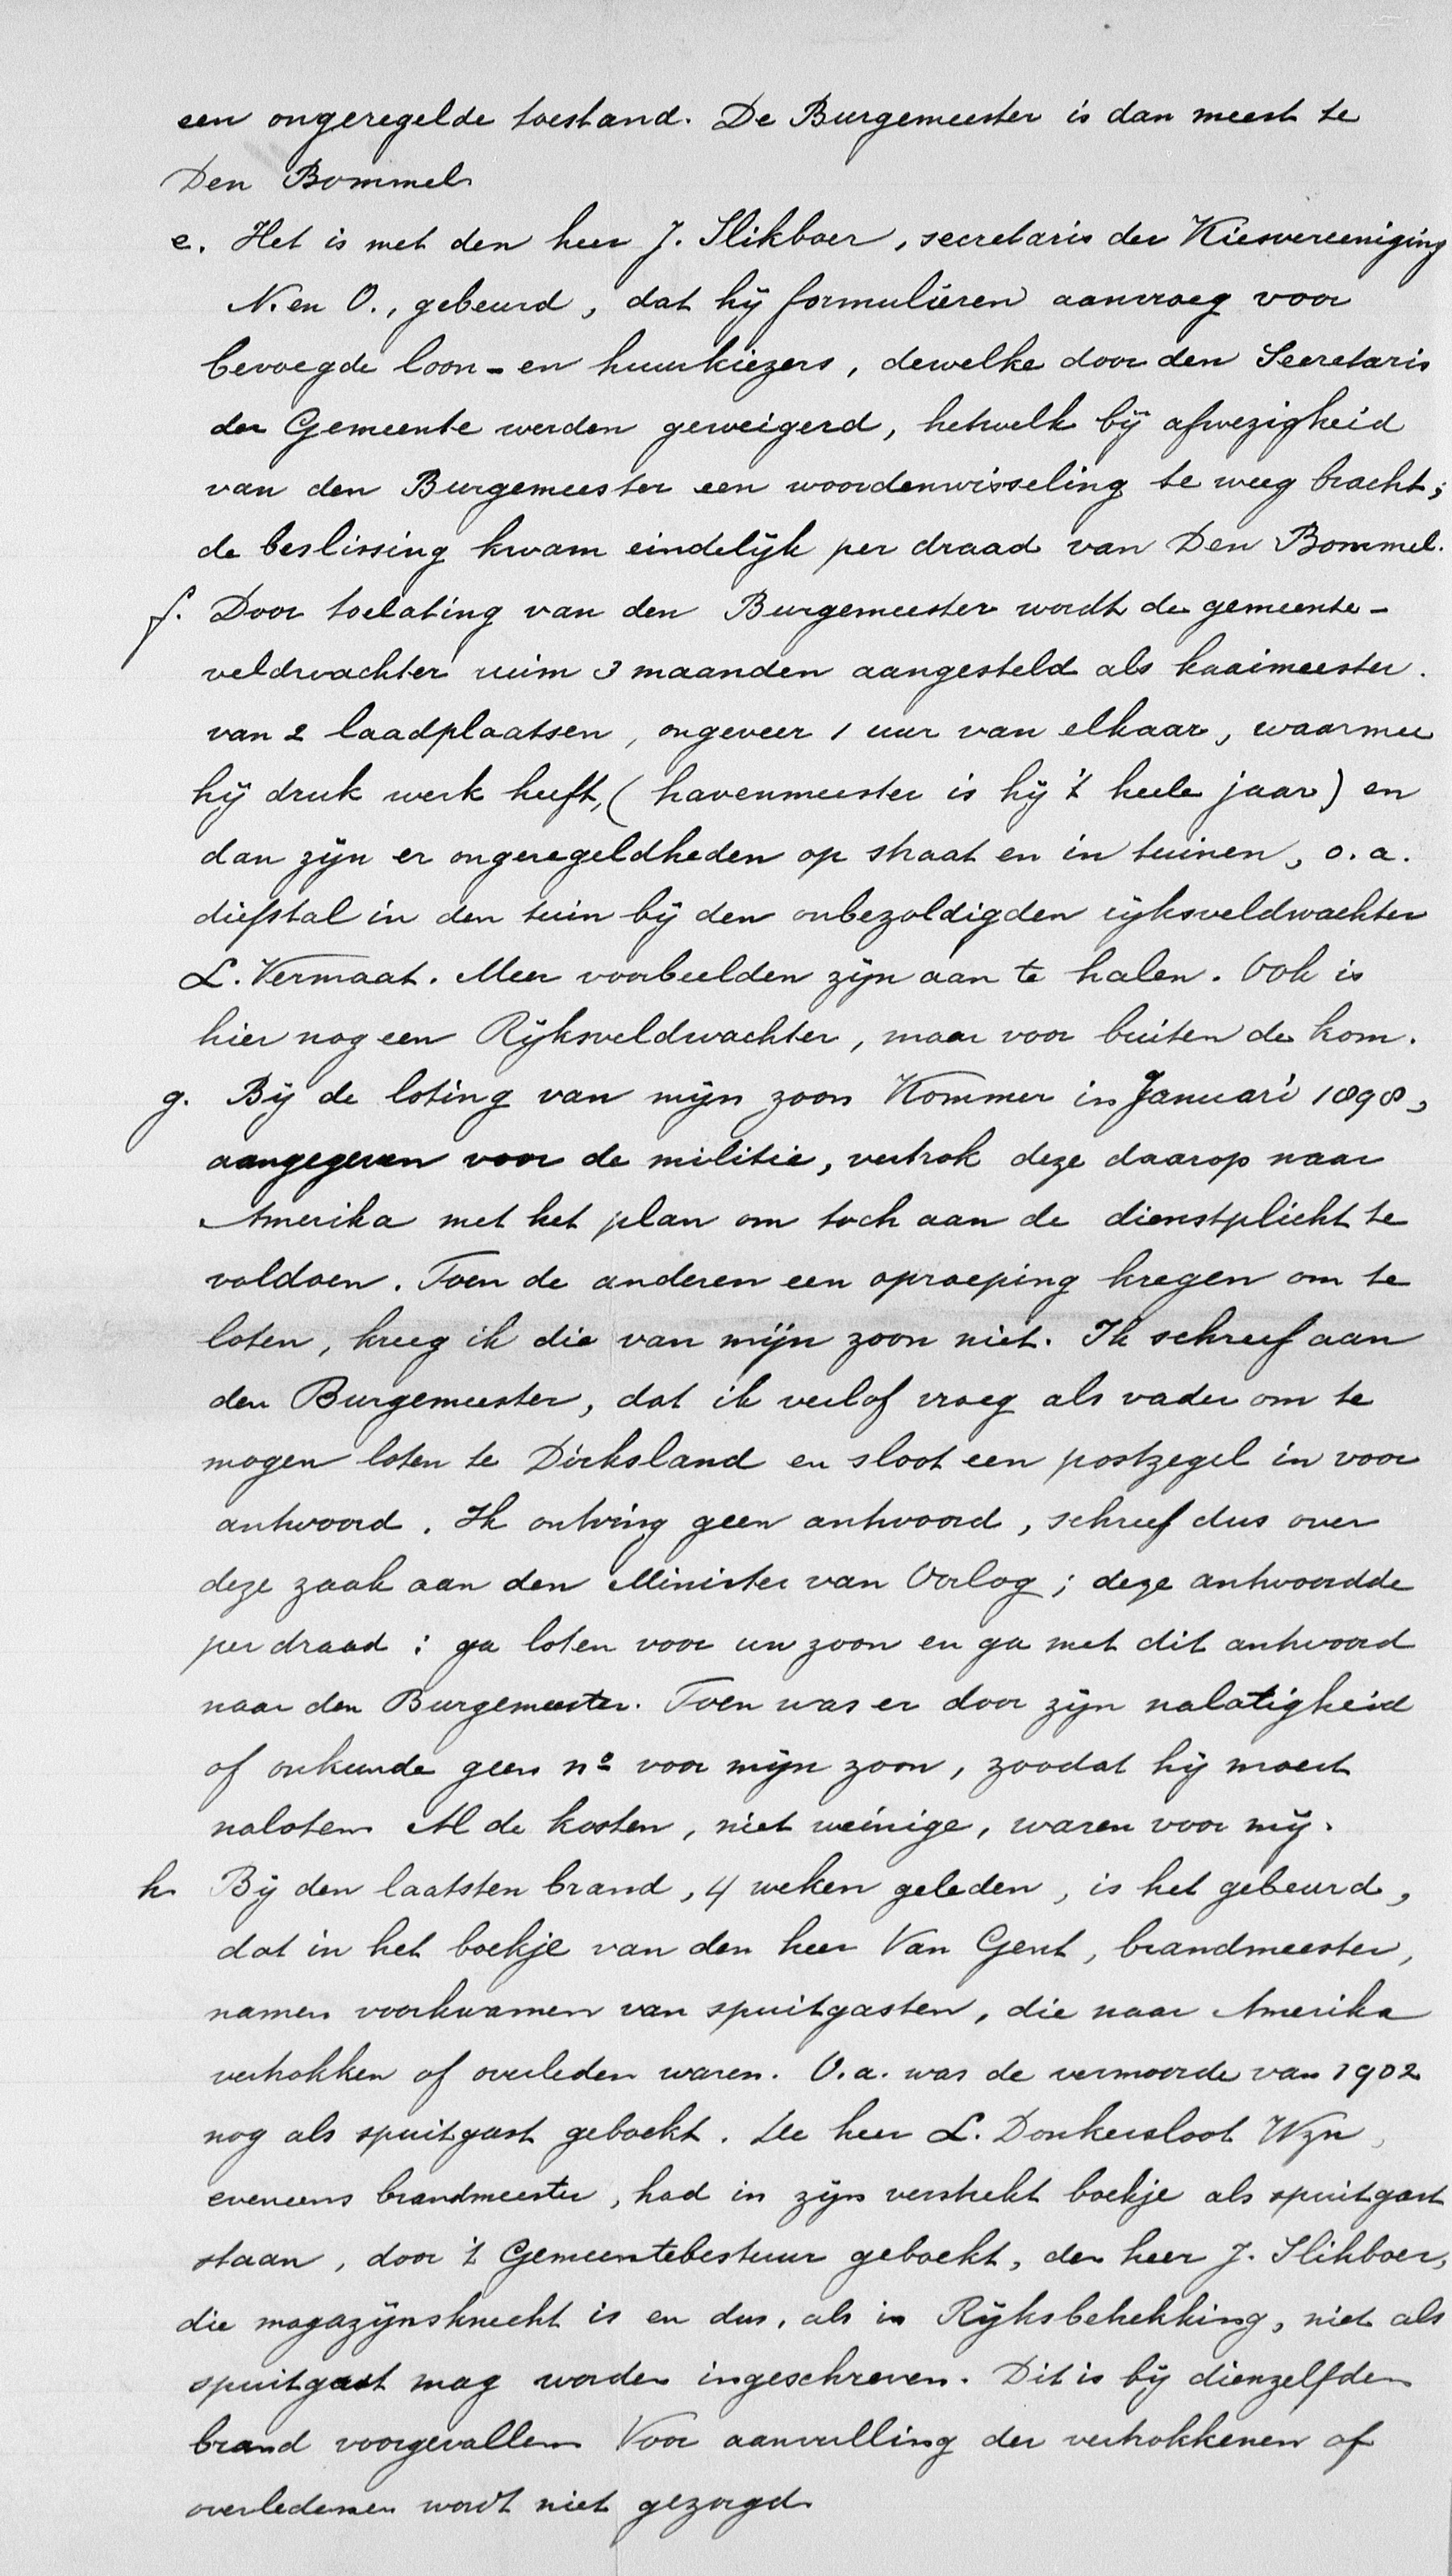 een ongeregelde toestand. De Burgemeester is dan meest te
Den Bommel
e. Het is met den heer J. Slikboer, secretaris der Kiesvereeniging
N. en O., gebeurd, dat hij formulieren aanvroeg voor
bevoegde loon- en huurkiezers, dewelke door den Secretaris
der Gemeente werden geweigerd, hetwelk bij afwezigheid
van den Burgemeester een woordenwisseling te weeg bracht;
de beslissing kwam eindelijk per draad van Den Bommel.
f. Door toelating van den Burgemeester wordt de gemeente-
veldwachter ruim 3 maanden aangesteld als kaaimeester.
van 2 laadplaatsen, ongeveer 1 uur van elkaar, waarmee
hij druk werk heeft, (havenmeester is hij 't heele jaar) en
dan zijn er ongeregeldheden op straat en in tuinen, o.a.
diefstal in den tuin bij den onbezoldigden rijksveldwachter
L. Vermaat. Meer voorbeelden zijn aan te halen. Ook is
hier nog een Rijksveldwachter, maar voor buiten de kom.
g. Bij de loting van mijn zoon Kommer in Januari 1898,
aangegeven voor de militie, vertrok deze daarop naar
Amerika met het plan om toch aan de dienstplicht te
voldoen. Toen de anderen een oproeping kregen om te
loten, kreeg ik die van mijn zoon niet. Ik schreef aan
den Burgemeester, dat ik verlof vroeg als vader om te
mogen loten te Dirksland en sloot een postzegel in voor
antwoord. Ik ontving geen antwoord, schreef dus over
deze zaak aan den Minister van Oorlog; deze antwoordde
per draad: ga loten voor uw zoon en ga met dit antwoord
naar den Burgemeester. Toen was er door zijn nalatigheid
of onkunde geen no voor mijn zoon, zoodat hij moest
naloten Al de kosten, niet weinige, waren voor mij.
h. Bij den laatsten brand, 4 weken geleden, is het gebeurd,
dat in het boekje van den heer Van Gent, brandmeester,
namen voorkwamen van spuitgasten, die naar Amerika
vertrokken of overleden waren. O.a. was de vermoorde van 1902
nog als spuitgast geboekt. De heer L. Donkersloot Wzn,
eveneens brandmeester, had in zijn verstrekt boekje als spuitgast
staan, door 't Gemeentebestuur geboekt, den heer J. Slikboer,
die magazijnsknecht is en dus, als in Rijksbetrekking, niet als
spuitgast mag worden ingeschreven. Dit is bij dienzelfden
brand voorgevallen Voor aanvulling der vertrokkenen of
overledenen wordt niet gezorgd